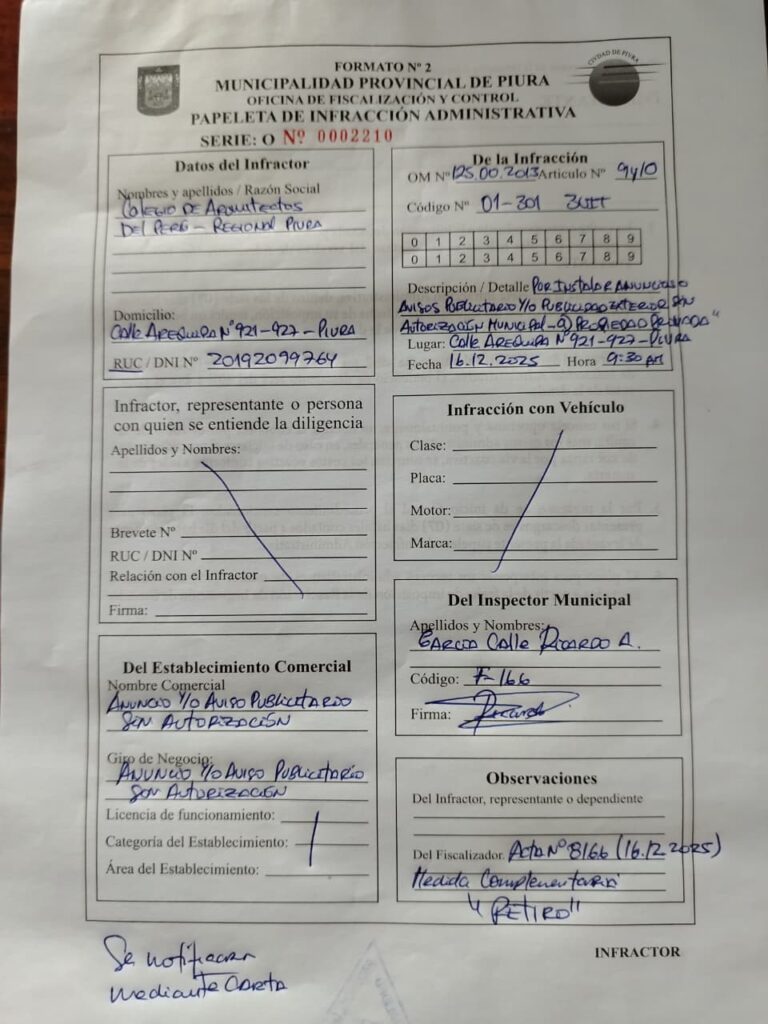 CIUDAD DE PIURA
FORMATO Nº 2
MUNICIPALIDAD PROVINCIAL DE PIURA
OFICINA DE FISCALIZACIÓN Y CONTROL
PAPELETA DE INFRACCIÓN ADMINISTRATIVA
SERIE: O Nº 0002210
Datos del Infractor
Nombres y apellidos / Razón Social
COLEGIO DE ARQUITECTOS
DEL PERÚ - REGIONAL PIURA
Domicilio:
CALLE AREQUIPA Nº 921-927-PIURA
RUC / DNI Nº 20192099764
De la Infracción
OM Nº 125.00.2013 Artículo Nº 9y10
Código Nº 01-301
0 1 2 3 4 5 6 7 8 9
0 1 2 3 4 5 6 7 8 9
Descripción / Detalle POR INSTALAR ANUNCIOS O
AVISOS PUBLICITARIO Y/O PUBLICIDAD EXTERIOR SIN
AUTORIZACIÓN MUNICIPAL - a) PROPIEDAD PRIVADA"
Lugar: CALLE AREQUIPA Nº 921-927-PIURA
Fecha 16.12.2025 Hora 9:30 am
Infractor, representante o persona
con quien se entiende la diligencia
Apellidos y Nombres:
Brevete Nº
RUC / DNI Nº
Relación con el Infractor
Firma:
Infracción con Vehículo
Clase:
Placa:
Motor:
Marca:
Del Inspector Municipal
Apellidos y Nombres:
GARCIA CALLE RICARDO A.
Código: F-166
Firma:
Del Establecimiento Comercial
Nombre Comercial
ANUNCIO Y/O AVISO PUBLICITARIO
SIN AUTORIZACIÓN
Giro de Negocio:
ANUNCIO Y/O AVISO PUBLICITARIO
SIN AUTORIZACIÓN
Licencia de funcionamiento:
Categoría del Establecimiento:
Área del Establecimiento:
Observaciones
Del Infractor, representante o dependiente
Del Fiscalizador. Acta Nº 8166 (16.12.2025)
Medida Complementaria
"RETIRO"
INFRACTOR
Se notificara
mediante Carta